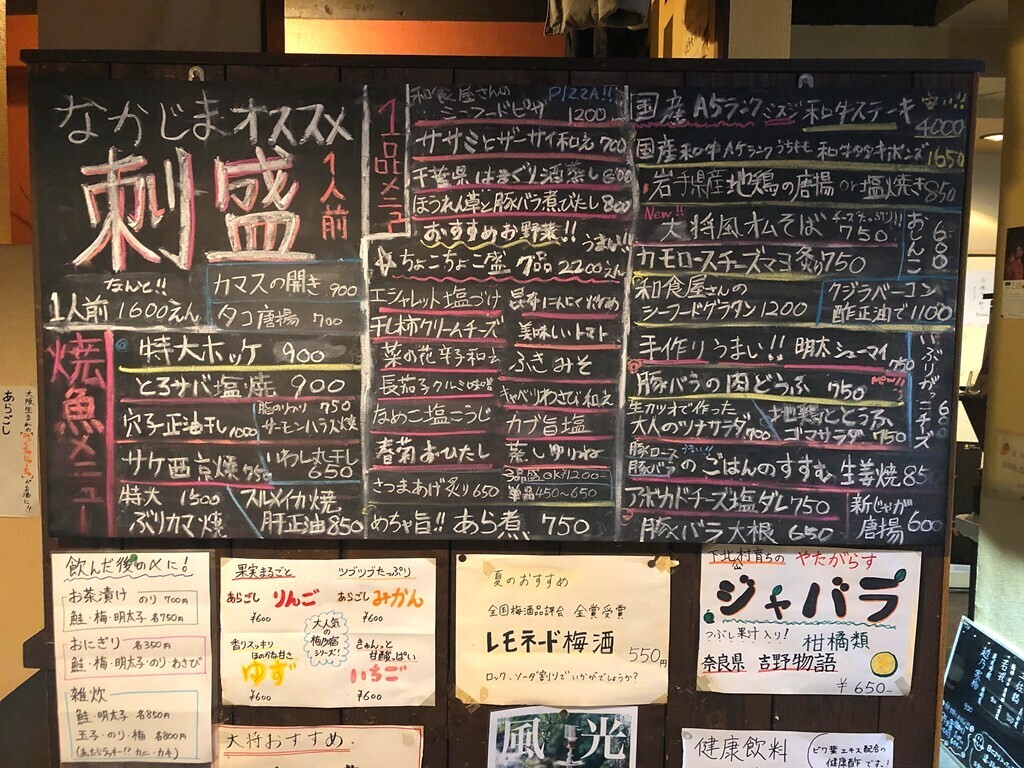 なかじまオススメ
刺盛
1人前
なんと!!
1人前1600えん
カマスの開き 900
タコ唐揚 700
焼魚メニュー
特大ホッケ 900
とろサバ塩焼 900
穴子正油干し 1000
脂のりのり 750
サーモンハラス焼
サケ西京焼 750
いわし丸干し
650
特大 1500
ぶりカマ焼
スルメイカ焼
肝正油 850
1品メニュー
和食屋さんの PIZZA!!
シーフードピザ 1200
ササミとザーサイ和え 700
千葉県はまぐり酒蒸し 800
ほうれん草と豚バラ煮びたし 800
おすすめお野菜!! うまい!!
ちょこちょこ盛 9品 2200えん
エシャレット塩づけ
干し柿クリームチーズ
菜の花辛子和え
長茄子クルミ味噌
なめこ塩こうじ
春菊おひたし
さつまあげ炙り 650
美味しいトマト
ふきみそ
キャベツわさび和え
カブ旨塩
蒸しゆりね
3品盛OK 1200-
単品 450~650
めちゃ旨!! あら煮 750
国産A5ランク 和牛ステーキ 安い!! 4000
国産和牛A4ランクうちもも 和牛タタキポンズ 1650
岩手県産地鶏の唐揚 or 塩焼き 850
New!!
大将風オムそば チーズたっぷり!! 750
おしんこ 600
カモロースチーズマヨ炙り 750
和食屋さんの
シーフードグラタン 1200
クジラベーコン
酢正油で 1100
手作りうまい!! 明太シューマイ 750
いぶりがっこチーズ 600
豚バラの肉どうふ 750 New!!
生カツオで作った
大人のツナサラダ 700
地鶏ととうふ
ゴマサラダ 750
豚ロース うまい!!
豚バラ のごはんのすすむ 生姜焼 850
アボカドチーズ塩ダレ 750
新じゃが
唐揚 600
豚バラ大根 650
飲んだ後の〆に!
お茶漬け のり 700円
鮭・梅・明太子 各750円
おにぎり 各350円
鮭・梅・明太子・のり・わさび
雑炊
鮭・明太子 各850円
玉子・のり・梅 各800円
(あたらラッキー!? カニ・カキ)
果実まるごと ツブツブたっぷり
あらごし りんご
¥600
あらごし みかん
¥600
大人気の梅乃宿シリーズ!
香りスッキリ
ほのかな甘さ
ゆず
¥600
きゅんっと
甘酸っぱい
いちご
¥600
夏のおすすめ
全国梅酒品評会 金賞受賞
レモネード梅酒 550円
ロック、ソーダ割りでいかがでしょうか?
下北村育ちの やたがらす
ジャバラ
つぶし果汁入り! 柑橘類
奈良県 吉野物語
¥650-
大将おすすめ
風光
健康飲料
ビワ葉エキス配合の
健康酢です!
あらごし